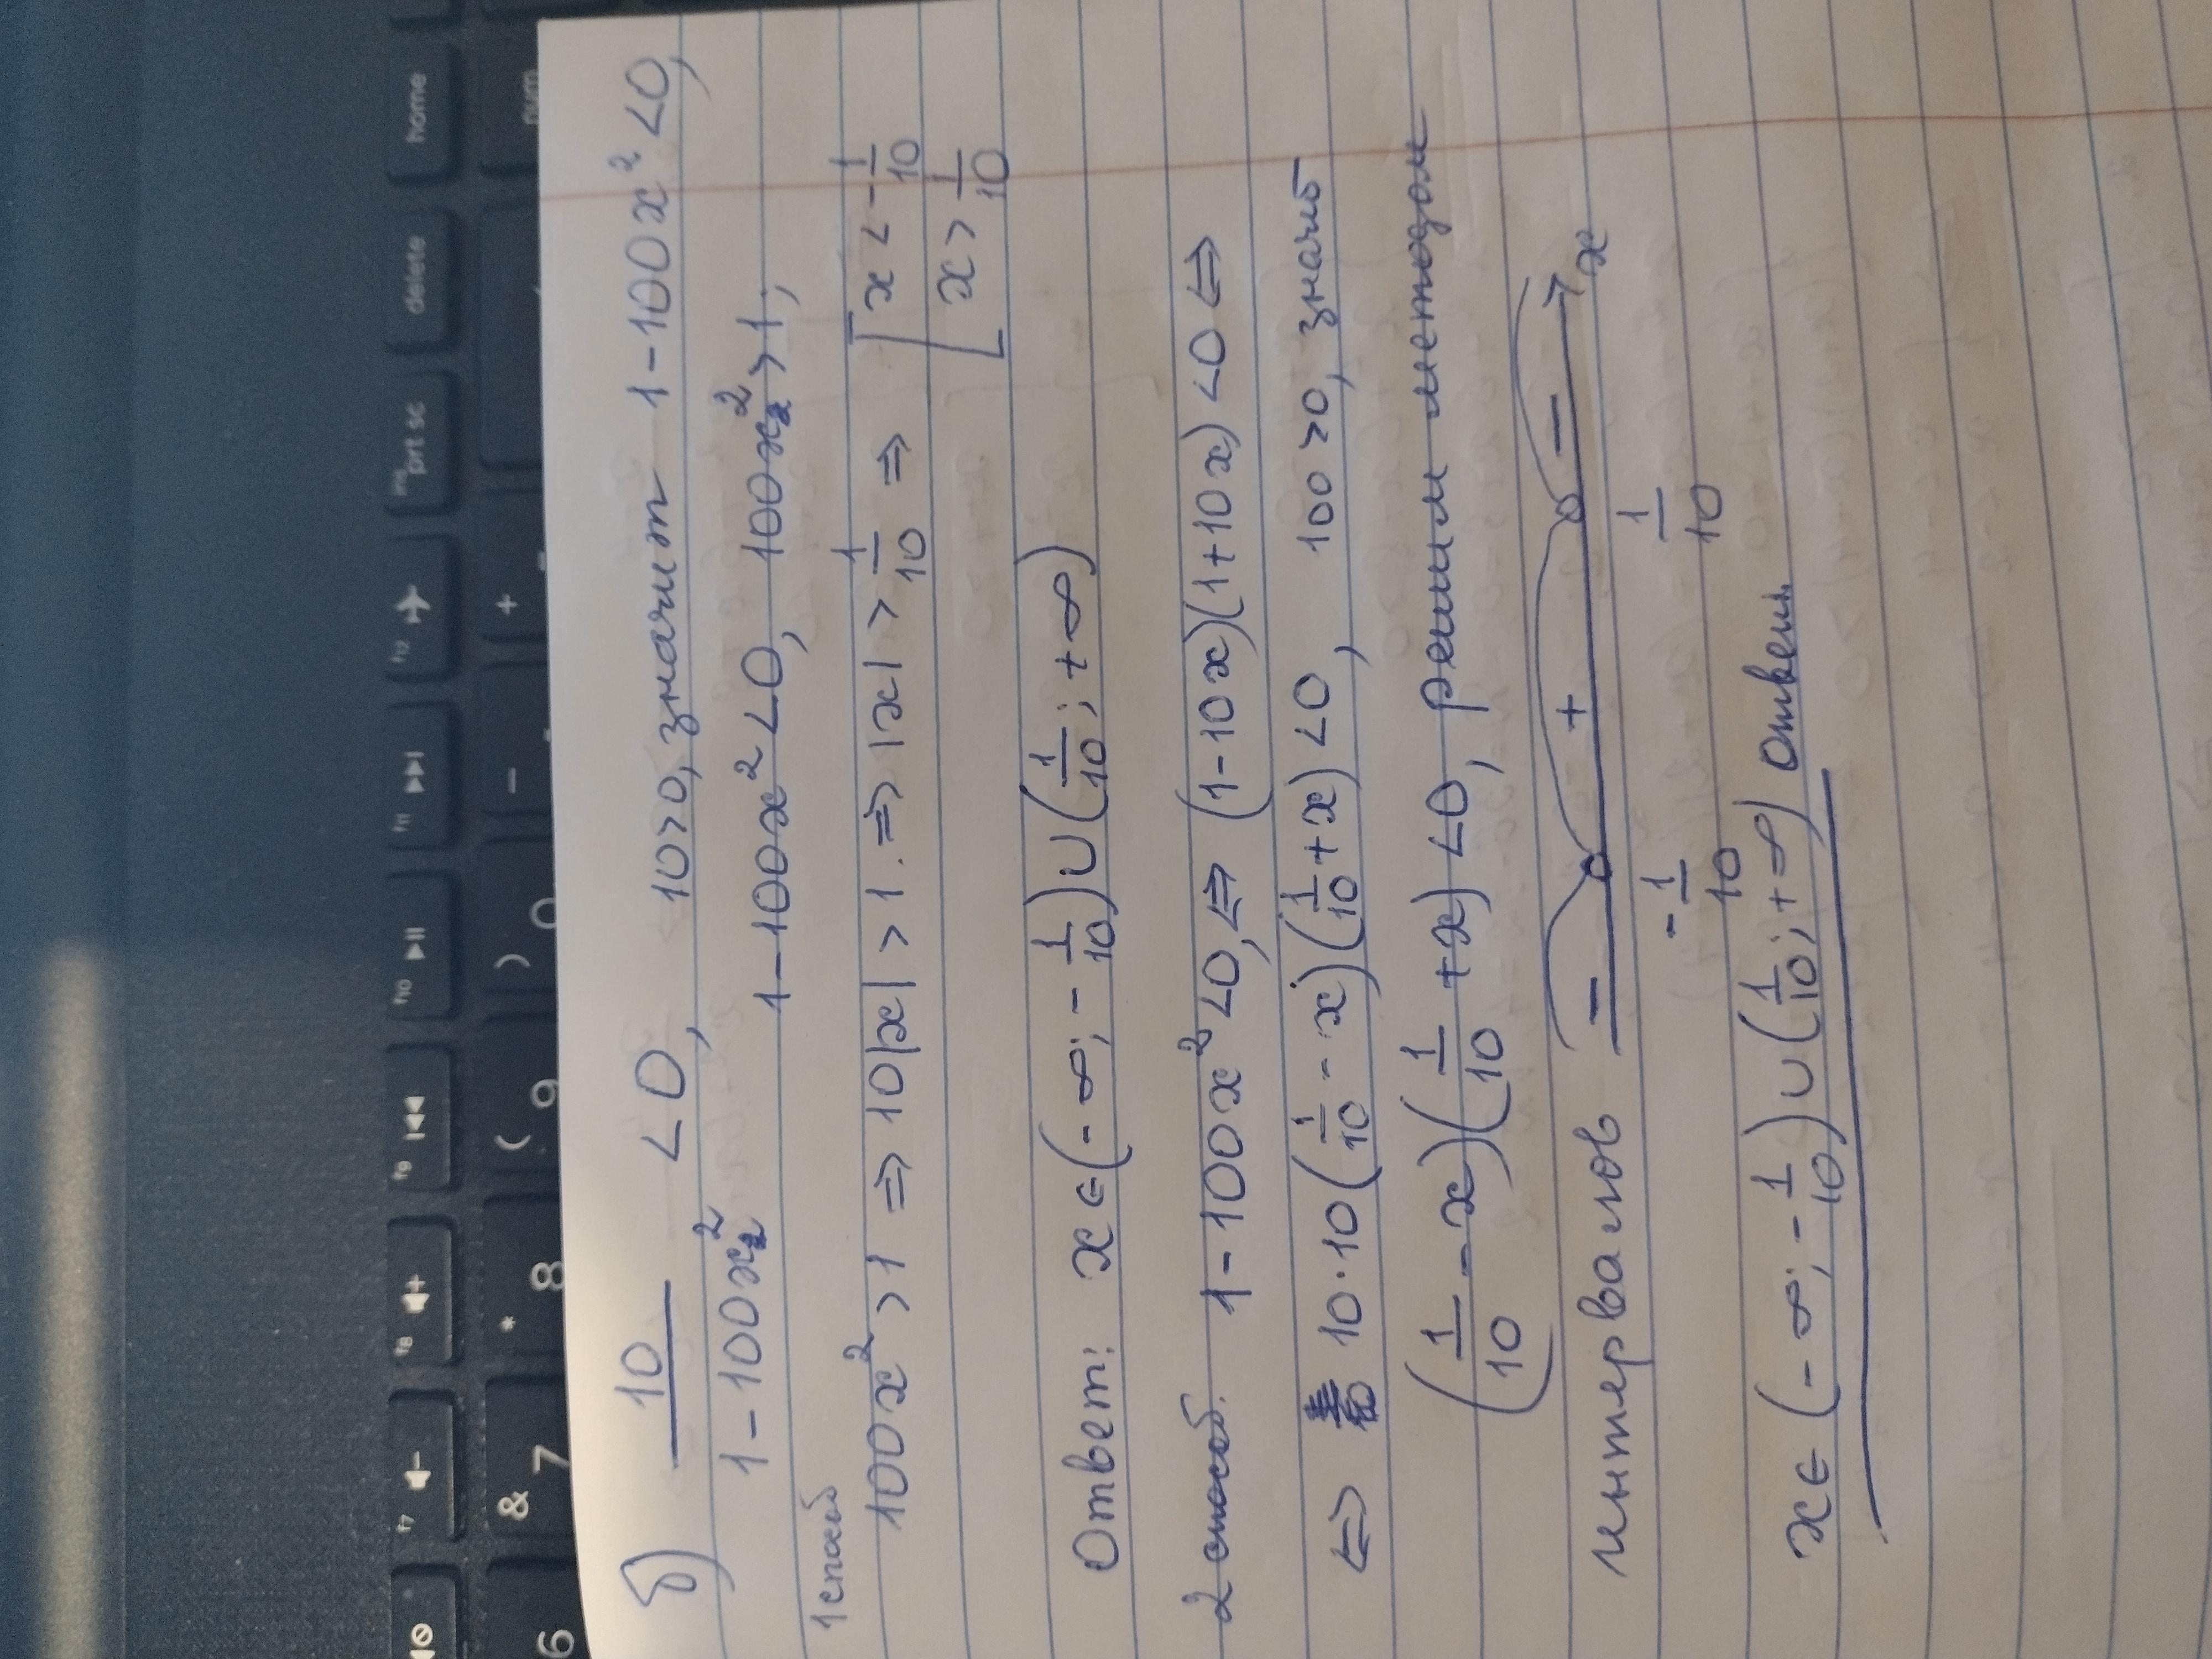 б) 10/(1-100x²) <0, 10>0, значит 1-100x²<0,
1-100x²<0, 100x²>1;
1 способ
100x²>1 ⇒ 10|x|>1. ⇒ |x|>1/10 ⇒ [x<-1/10
[x>1/10
Ответ: x∈(-∞;-1/10)∪(1/10;+∞)
2 способ. 1-100x²<0,⇔ (1-10x)(1+10x)<0⇔
⇔ 10·10(1/10-x)(1/10+x)<0, 100>0, значит
(1/10-x)(1/10+x)<0, решим методом
интервалов − + − x
-1/10 1/10
x∈(-∞;-1/10)∪(1/10;+∞) Ответ.
home
delete
prt sc
f12
f11
f10
f9
f8
f7
+
−
) 0
( 9
* 8
& 7
6